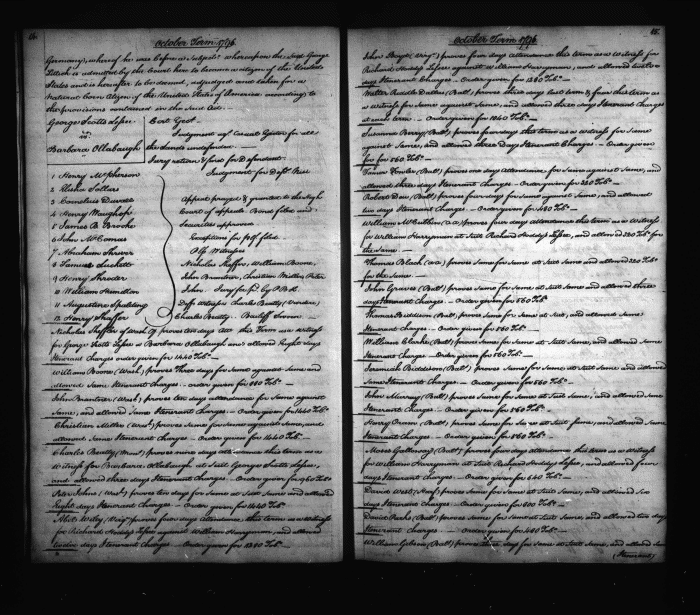 October Term 1796
Germany, whereof he was before a subject whereupon the said George
is admitted by the Court here to become a citizen of the United
States and is hereafter to be deemed, adjudged and taken for a
Natural born citizen of the United States of America according to
the provisions contained in the said Act
George Scotts Lessee Eject
vs Judgment agt Casual Ejector for all
Barbara Ollabaugh the lands undefended
Jury return & find for Defendant
Judgment for Deft
1 Henry McPherson
2 Elisha Sellars
3 Cornelius Appeal prayed & granted to the high
4 Henry Court of appeals Bond filed and
5 James B. Brooke Securities approved
6 John McComas Exceptions for filed
7 Abraham Shriver Witnesses
8 Luckett Nicholas Shaffer, William Boone,
9 Henry Shroder John Brantner, Christian Miller, Peter
10 William Hamilton John
11 Augustine Spalding Defts witnesses Charles
12 Henry Shaffer Charles Bailiff
Nicholas Shaffer of proves ten days this Term as witness
for George Scotts Lessee vs Barbara Ollabaugh and allowed Eight days
Itinerant charges order given for 1440
William Boone (Wash) proves Three days for same against same and
allowed same Itinerant charges - order given for 880
John Brantner (Wash) proves ten days attendance for same against
Same, and allowed same Itinerant Charges - order given for 1440
Christian Miller (Wash) proves same for same against same, and
allowed same Itinerant Charges - Order given for 1440
Charles proves nine days attendance this term as a
Witness for Barbara Ollabaugh at suit George Scotts Lessee,
and allowed three days Itinerant Charges - Order given for 960
Peter Johns (Wash) proves ten days for same at suit same and allowed
Eight days Itinerant Charges - Order given for 1440
proves four days attendance, this term as a witness
for Richard Lessee against William Harryman, and allowed
twelve days Itinerant Charges - Order given for
October Term 1796
John proves four days attendance this term as a witness for
Richard Lessee against William Harryman, and allowed twelve
days Itinerant Charges - Order given for 1360
Walter proves three days last term & four this term as
a Witness for same against same, and allowed three days Itinerant Charges
at each term - Order given for 1040
Berry (Balt) proves four days this term as a witness for same
against same, and allowed three days Itinerant Charges - Order given
for 560
(Balt) proves one days attendance for same against same, and
allowed three days Itinerant Charges - Order given for 320
Robert (Balt) proves four days for same against same, and allowed
two days Itinerant Charges - order given for 480
William proves four days attendance this term as a Witness
for William Harryman at suit Richard Lessee, and allowed 320
the same
Thomas proves same for same at suit same and allowed 320
for the same
John Graves (Balt) proves same for same at suit same, and allowed three
days Itinerant Charges - Order given for 560
Thomas Biddison (Balt) proves same for same at suit, and allowed same
Itinerant Charges - order given for 560
William Clarke (Balt) proves same for same at suit same, and allowed same
Itinerant Charges - Order given for 560
Jeremiah Biddison (Balt) proves same for same at suit same, and allowed
same Itinerant Charges - Order given for 560
John Murray (Balt) proves same for same at suit same, and allowed same
Itinerant Charges - Order given for 560
Henry (Balt) proves same for same at suit same, and allowed same
Itinerant Charges - order given for 560
Moses Galloway (Balt) proves four days attendance this term as a Witness
for William Harryman at suit Richard Lessee, and allowed four
days Itinerant Charges - Order given for 640
David West proves same for same at suit same, and allowed six
days Itinerant Charges - Order given for 800
David (Balt) proves same for same at suit same, and allowed two days
Itinerant Charges - Order given for 480
William (Balt) proves three days for same at suit same, and allowed
(Itinerant)